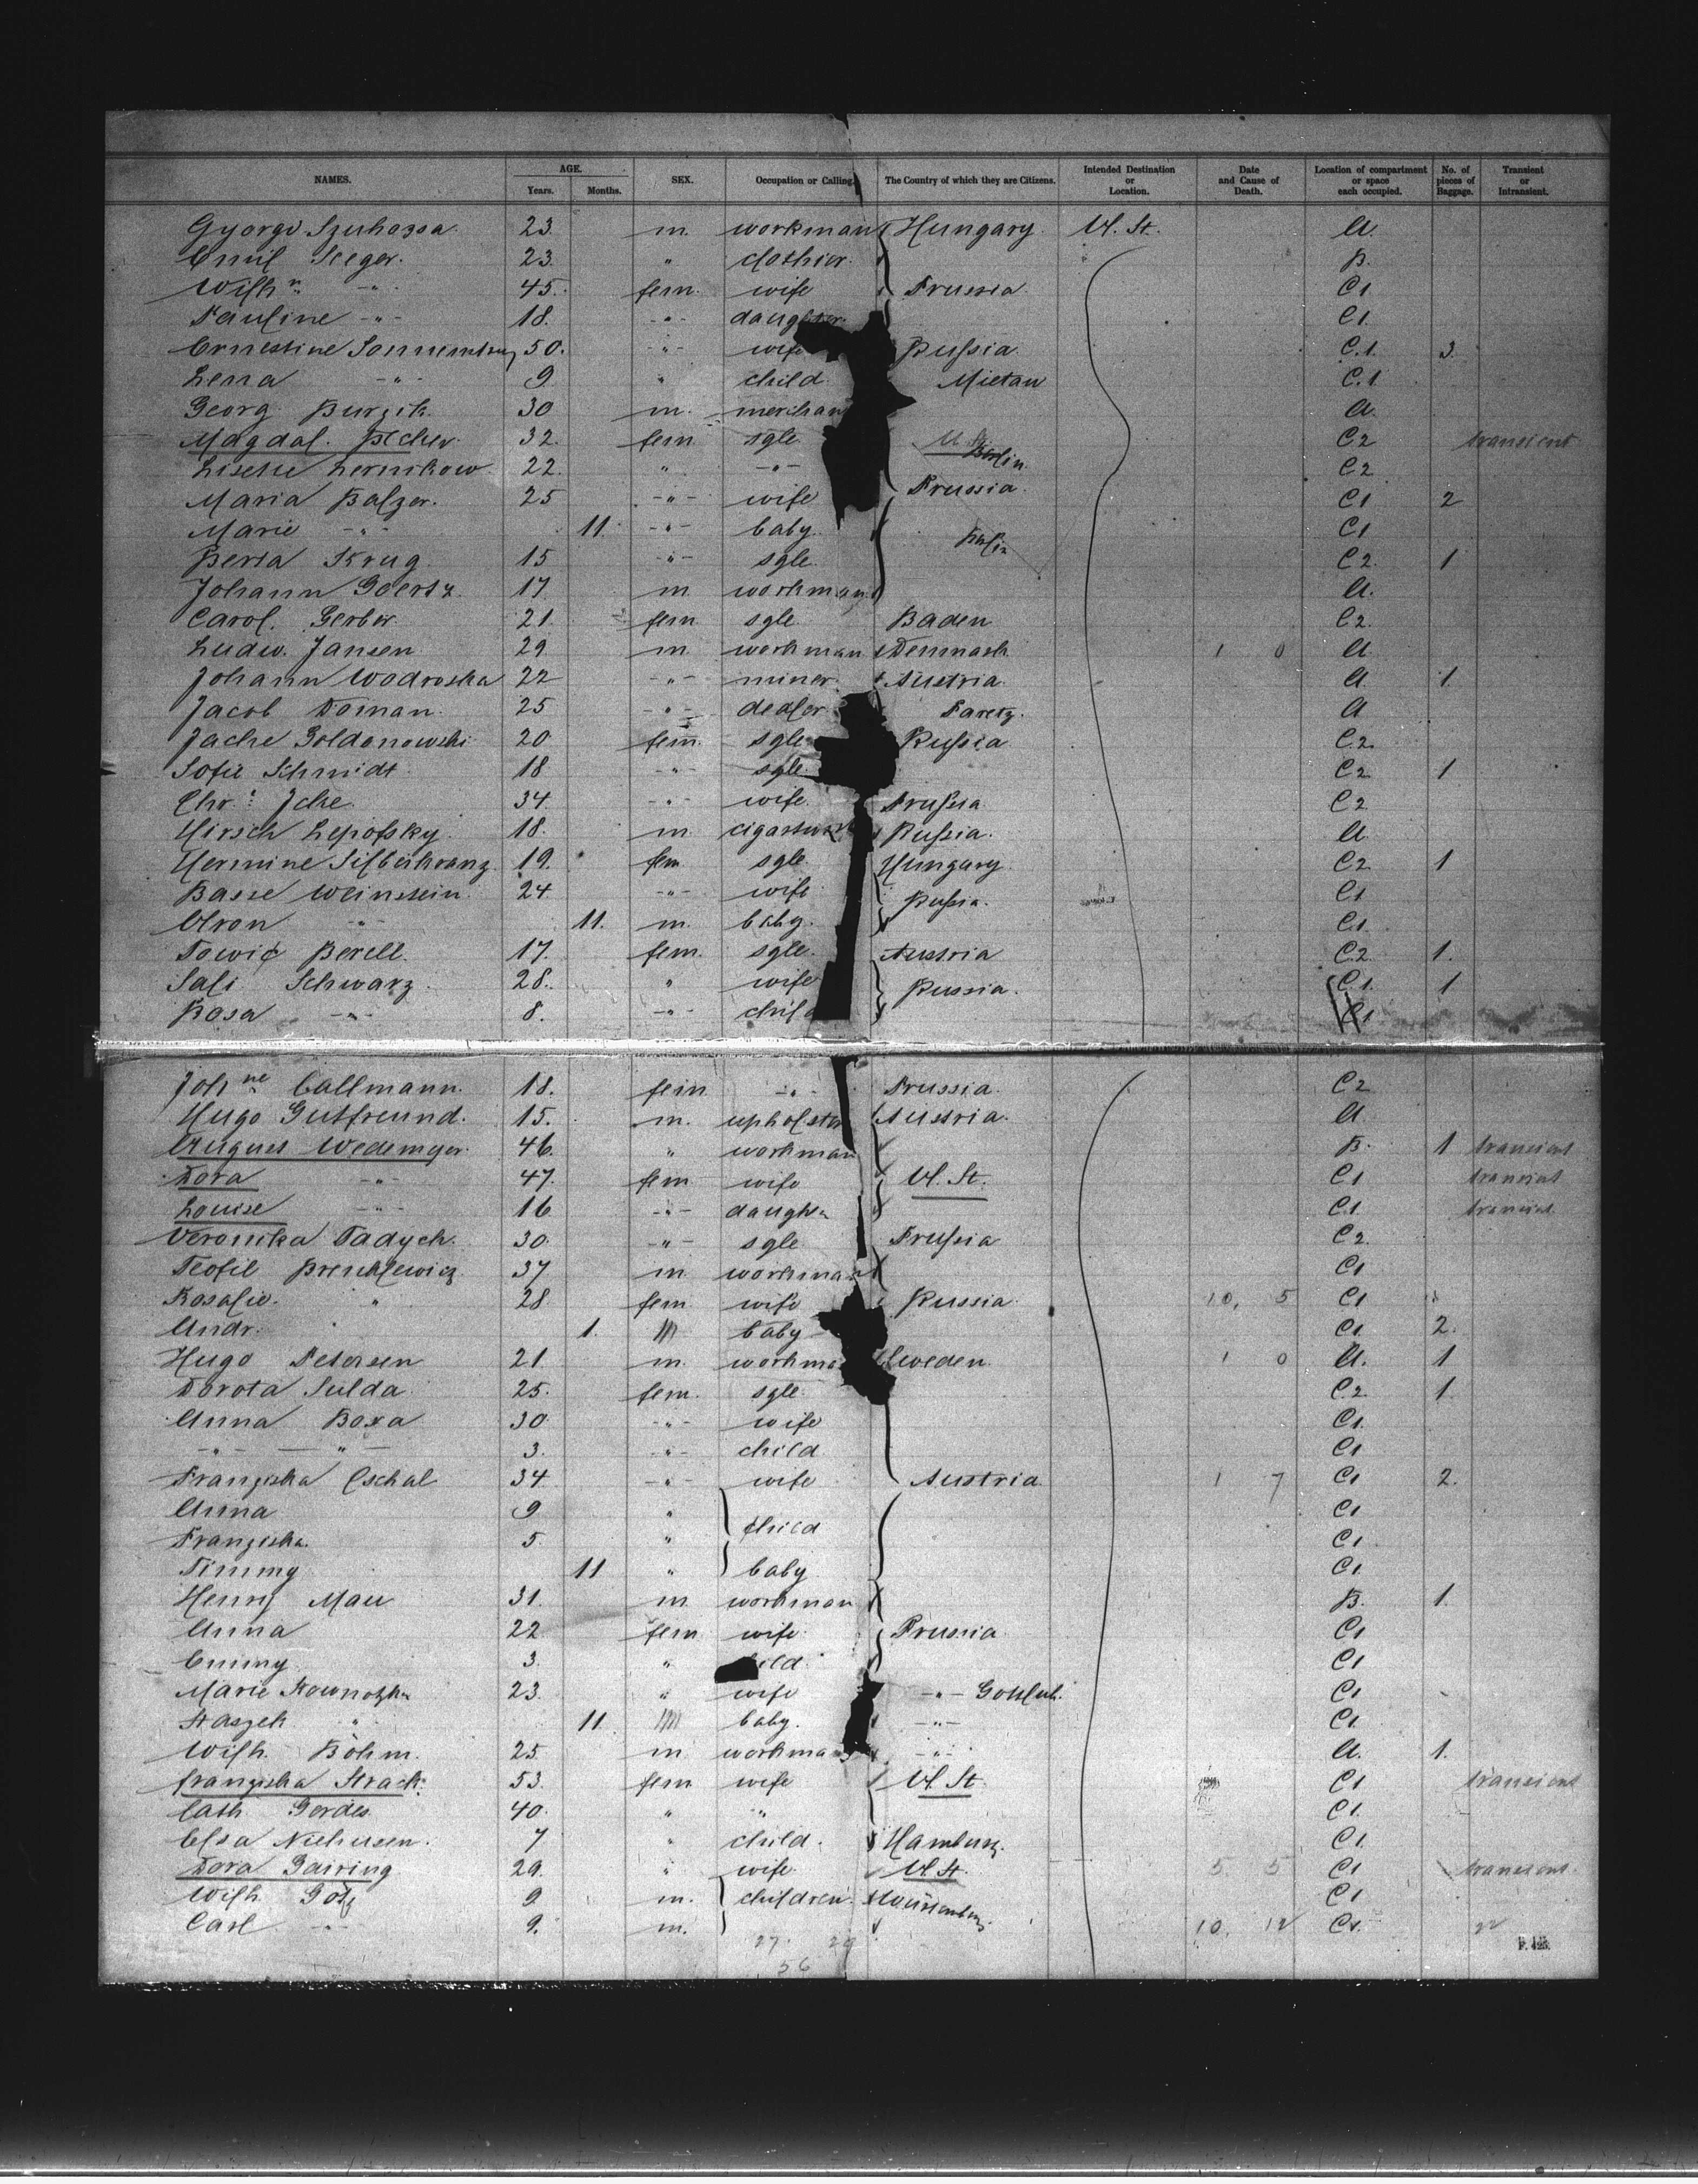 NAMES. AGE. Years. Months. SEX. Occupation or Calling. The Country of which they are Citizens. Intended Destination or Location. Date and Cause of Death. Location of compartment or space each occupied. No. of pieces of Baggage. Transient or Intransient.
Györgi Szuhozsa 23. m. workman Hungary U. St. A.
Emil Seeger. 23. " clothier B.
Wilhne -"- 45. fem. wife Prussia. C1.
Pauline -"- 18. -"- daughter C1.
Ernestine 50. -"- wife Russia C.1. 3.
Lena -"- 9. " child Mietau C.1.
Georg Burzik 30 m. merchan A.
Magdal. 32. fem sgle C2 transient
Lisette Lernikow 22. " -"- Berlin C2
Maria Balzer. 25 -"- wife Prussia. C1 2
Marie -"- 11. -"- baby C1
Berta Krug 15 -"- sgle. C2. 1
Johann Goertz. 17. m workman A.
Carol. Gerber 21. fem. sgle Baden C2.
Ludw. Jansen 29. m. workman Denmark 1 0 A
Johann Wodroska 22 -"- miner Austria A 1.
Jacob Doman. 25 -"- dealer A
Jache Goldonowski 20. fem. sgle Russia C.2.
Sofie Schmidt 18 -"- sgle. C2. 1
Chr. 34. -"- wife. Prussia C2
Hirsch Lepofsky. 18. m. Russia. A
Hermine Silberkranz 19. fem. sgle Hungary C2 1
Basse Weinstein 24. -"- wife Russia. C1
Aron -"- 11. m. baby. C1.
Berell 17. fem. sgle. Austria C2 1.
Sali Schwarz. 28. " wife Russia. C.1. 1
Rosa -"- 8. -"- child C1
Johne Callmann. 18. fem -"- Prussia C2
Hugo Gutfreund. 15. m. upholster Austria. A.
August Wedemyer. 46. " workman B. 1 transient
Dora -"- 47. fem wife U. St. C1 transient
Louise -"- 16 -"- daughter C.1 transient
Veronika Tadych. 30. -"- sgle Prussia C2.
Teofil 37 m. workman C1
Rosalie. " 28 fem. wife Russia 10, 5 C1
Andr. " 1. m baby C1. 2.
Hugo Petersen 21. m. workma Sweden. 1 0 A. 1
Dorota Sulda 25. fem. sgle C.2. 1.
Anna Boxa 30 -"- wife C1.
-"- -"- 3. -"- child C1
Franziska 34 -"- wife Austria. 1 7 C1 2.
Anna 9 " child C1
Franziska. 5. " C1
Timmy 11 " baby C1.
Henry Mau 31. m. workman B. 1.
Anna 22 fem wife Prussia C1
Emmy 3. " ild C1
Marie 23. " wife -"- C1
Staszek " 11. baby. -"- C1.
Wilh. Böhm. 25. m. workman -"- A. 1.
Franziska Strack. 53. fem wife U. St. C1 transient
Cath Gerdes 40. " " C1.
Elsa Niehusen. 7 " child. Hamburg. C1.
Dora Gairing 29. " wife U. St. 5. 5 C1 transient.
Wilh Götz 9 m. children. C1
Carl -"- 9. m. 10, 12 C1.
27. 29
56